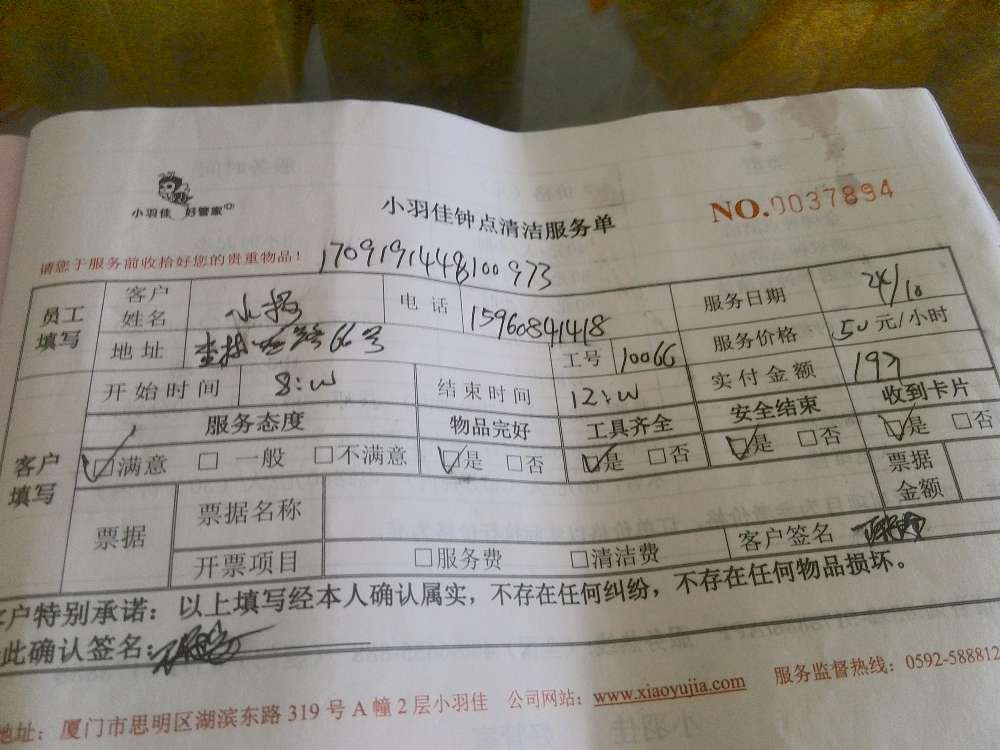 小羽佳 好管家
小羽佳钟点清洁服务单
NO.0037894
请您于服务前收拾好您的贵重物品!
1709191448100973
员工填写 客户姓名 电话 15960841418 服务日期 24/10
地址 66号 工号 10066 服务价格 50元/小时
开始时间 8:00 结束时间 12:00 实付金额 197
客户填写 服务态度 物品完好 工具齐全 安全结束 收到卡片
☑满意 □一般 □不满意 ☑是 □否 ☑是 □否 ☑是 □否 ☑是 □否
票据 票据名称 票据金额
开票项目 □服务费 □清洁费 客户签名
客户特别承诺:以上填写经本人确认属实,不存在任何纠纷,不存在任何物品损坏。
此确认签名:
地址: 厦门市思明区湖滨东路 319 号 A 幢 2 层小羽佳 公司网站: www.xiaoyujia.com 服务监督热线: 0592-588812